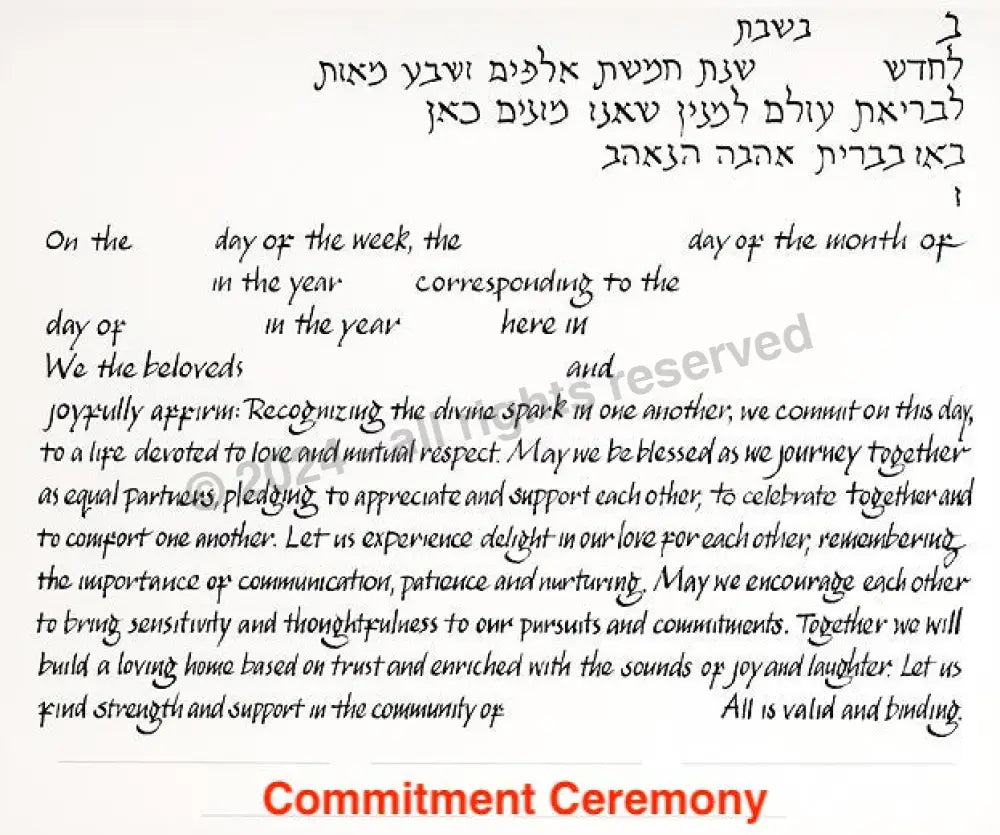 ב בשבת
לחדש שנת חמשת אלפים ושבע מאות
לבריאת עולם למנין שאנו מונים כאן
באו בברית אהבה הנאהב
ו
On the day of the week, the day of the month of
in the year corresponding to the
day of in the year here in
We the beloveds and
joyfully affirm: Recognizing the divine spark in one another, we commit on this day,
to a life devoted to love and mutual respect. May we be blessed as we journey together
as equal partners, pledging to appreciate and support each other, to celebrate together and
to comfort one another. Let us experience delight in our love for each other, remembering
the importance of communication, patience and nurturing. May we encourage each other
to bring sensitivity and thoughtfulness to our pursuits and commitments. Together we will
build a loving home based on trust and enriched with the sounds of joy and laughter. Let us
find strength and support in the community of All is valid and binding.
© 2024 - all rights reserved
Commitment Ceremony